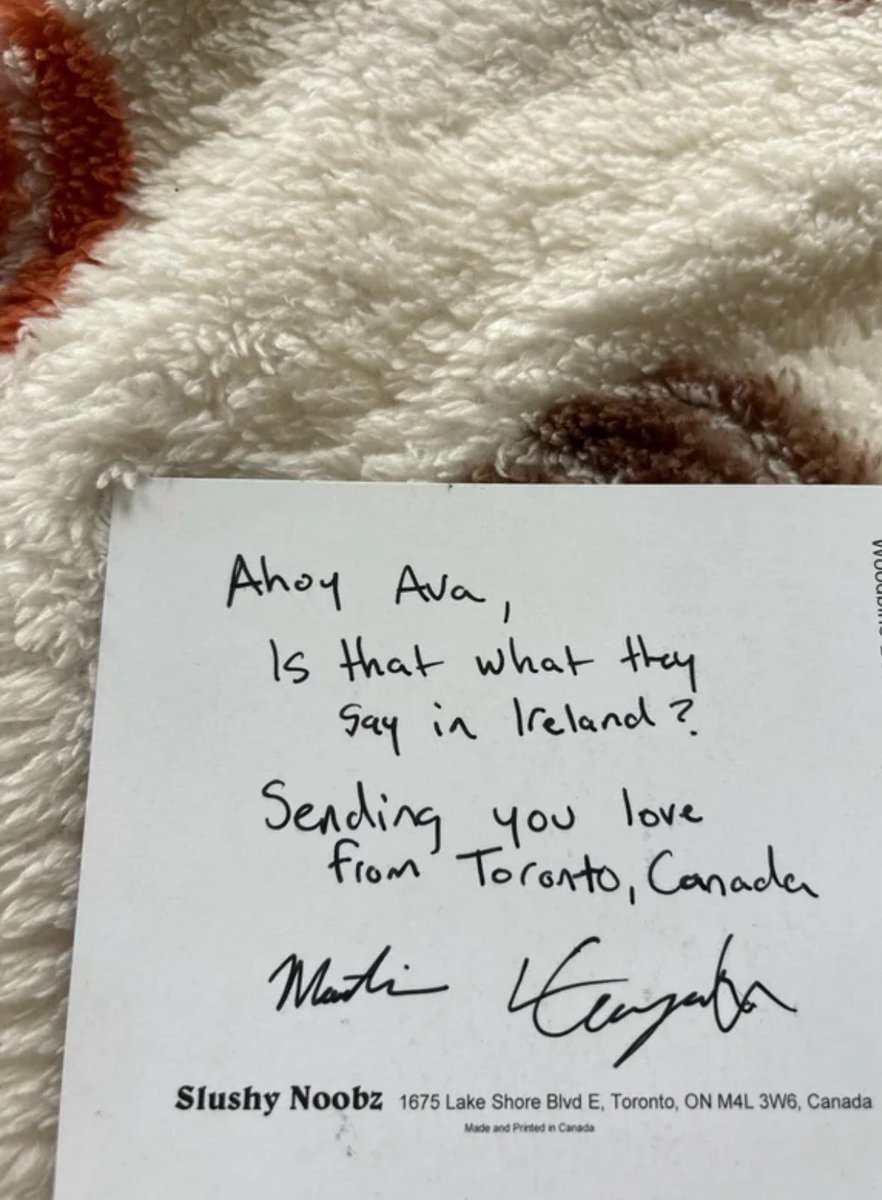 Ahoy Ava,
Is that what they
say in Ireland?
Sending you love
from Toronto, Canada
Martin
Slushy Noobz 1675 Lake Shore Blvd E, Toronto, ON M4L 3W6, Canada
Made and Printed in Canada